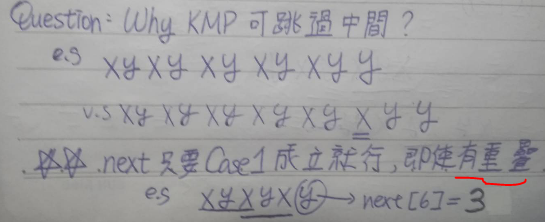 Question: Why KMP 可跳過中間?
e.g xy xy xy xy xy y
v.s xy xy xy xy xy x y y
☆☆.next 只要 Case1 成立就行,即使有重疊
e.g xyxyxy → next[6]=3